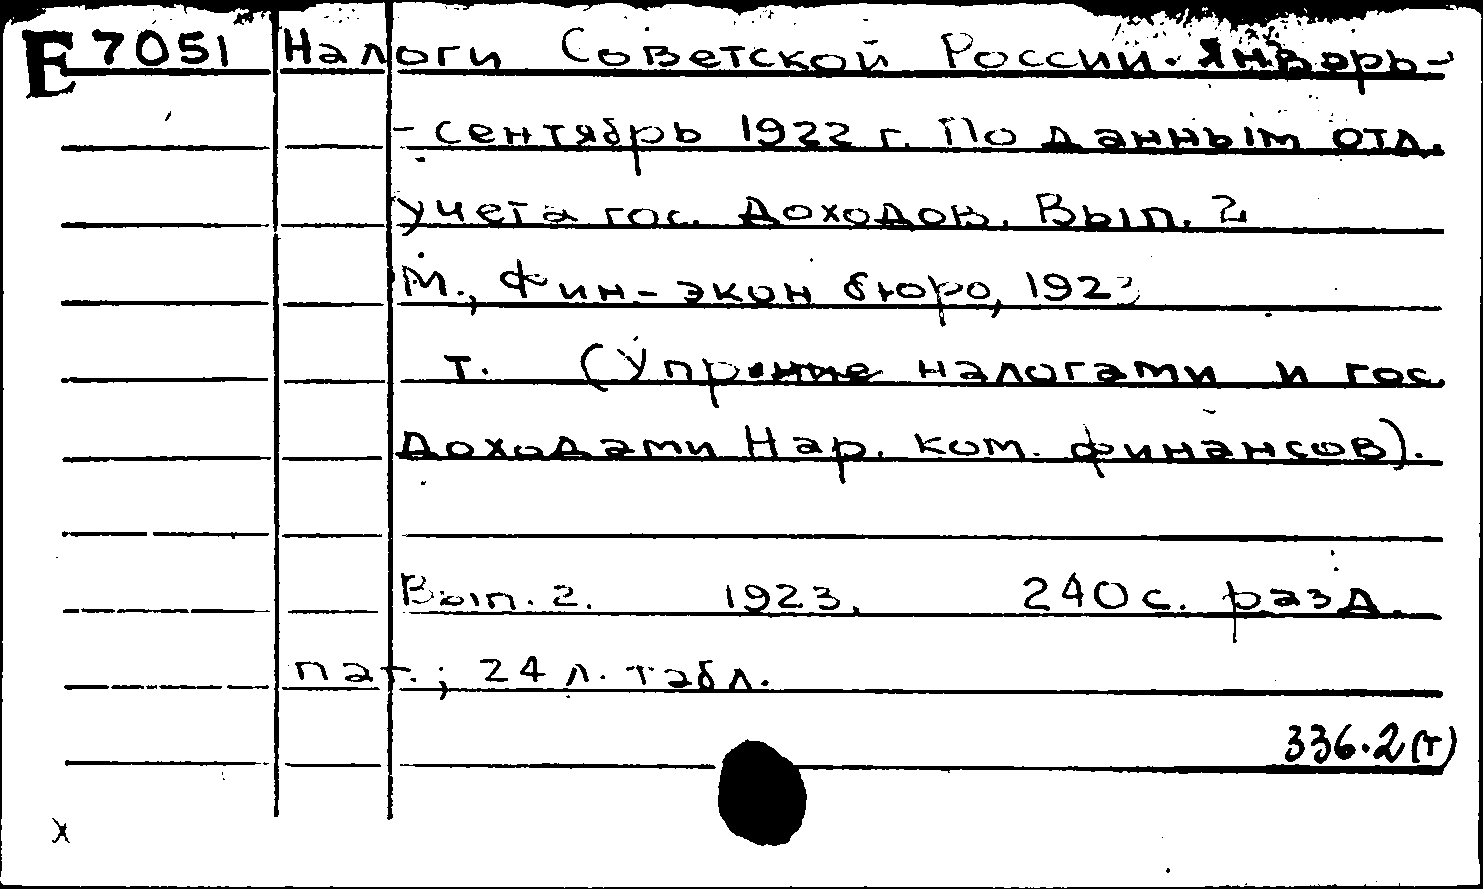 E 7051 Налоги Советской России. Январь-
- сентябрь 1922 г. По данным отд.
учета гос. доходов. Вып. 2
М., Фин-экон бюро, 1923
т. (Упр-ние налогами и гос
доходами Нар. ком. финансов).
Вып. 2. 1923. 240 с. разд.
паг.; 24 л. табл.
336.2(т)
x